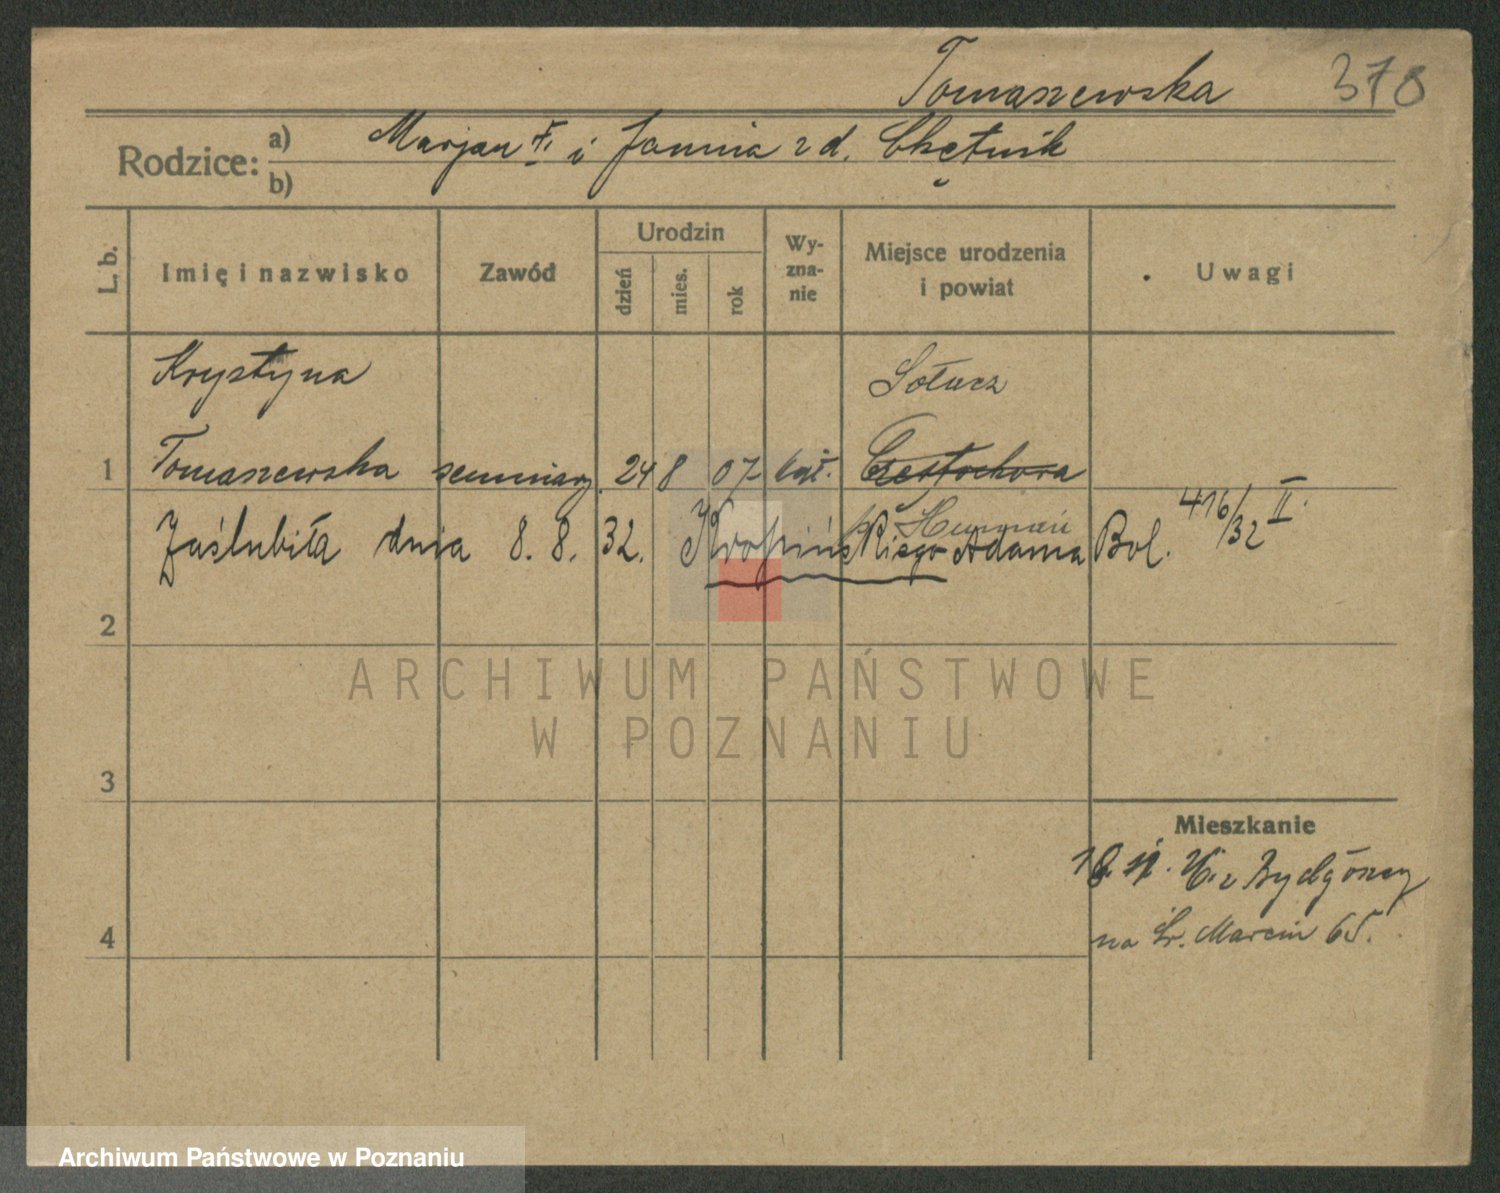 Tomaszewska 378
Rodzice: a) Marjan † i Janina z d. Chętnik
b)
L. b. Imię i nazwisko Zawód Urodzin dzień mies. rok Wyznanie Miejsce urodzenia i powiat Uwagi
Krystyna Sołacz
1 Tomaszewska seminarz. 24 8 07 kat. Częstochowa
p. Humań
Zaślubiła dnia 8. 8. 32. Kropińskiego Adama Bol. 416/32 II.
2
3
Mieszkanie
18. z Bydgoszcz
4 na Św. Marcin 65.
ARCHIWUM PAŃSTWOWE
W POZNANIU
Archiwum Państwowe w Poznaniu